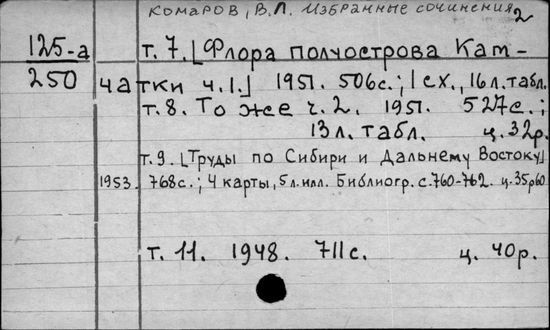 Комаров, В.Л. Избранные сочинения 2
125-а
250
т. 7. [Флора полуострова Кам-
чатки ч. I.] 1951. 506с.; 1 сх., 16л. табл.
т. 8. То же ч. 2. 1951. 527с.;
13л. табл. ц. 32р.
т. 9. [Труды по Сибири и Дальнему Востоку]
1953. 768с.; 4 карты, 5 л. илл. Библиогр. с. 760-762. ц. 35р60
т. 11. 1948. 711с. ц. 40р.